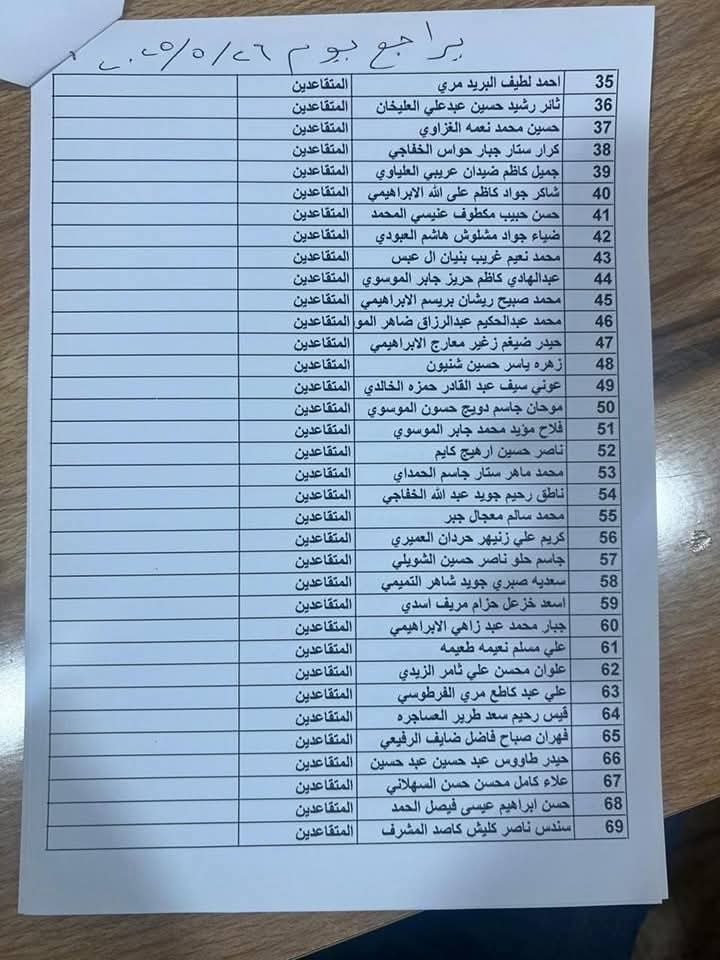 يراجع يوم ٢٠٢٥/٥/٢٦
35 احمد لطيف البريد مري المتقاعدين
36 ثائر رشيد حسين عبدعلي العليخان المتقاعدين
37 حسين محمد نعمه الغزاوي المتقاعدين
38 كرار ستار جبار حواس الخفاجي المتقاعدين
39 جميل كاظم ضيدان عريبي العلياوي المتقاعدين
40 شاكر جواد كاظم على الله الابراهيمي المتقاعدين
41 حسن حبيب مكطوف عنيسي المحمد المتقاعدين
42 ضياء جواد مشلوش هاشم العبودي المتقاعدين
43 محمد نعيم غريب بنيان ال عبس المتقاعدين
44 عبدالهادي كاظم حريز جابر الموسوي المتقاعدين
45 محمد صبيح ريشان بريسم الابراهيمي المتقاعدين
46 محمد عبدالحكيم عبدالرزاق ضاهر المو المتقاعدين
47 حيدر ضيغم زغير معارج الابراهيمي المتقاعدين
48 زهره ياسر حسين شنيون المتقاعدين
49 عوني سيف عبد القادر حمزه الخالدي المتقاعدين
50 موحان جاسم دويج حسون الموسوي المتقاعدين
51 فلاح مؤيد محمد جابر الموسوي المتقاعدين
52 ناصر حسين ارهيج كايم المتقاعدين
53 محمد ماهر ستار جاسم الحمداي المتقاعدين
54 ناطق رحيم جويد عبد الله الخفاجي المتقاعدين
55 محمد سالم معجال جبر المتقاعدين
56 كريم علي زنيهر حردان العميري المتقاعدين
57 جاسم حلو ناصر حسين الشويلي المتقاعدين
58 سعديه صبري جويد شاهر التميمي المتقاعدين
59 اسعد خزعل حزام مريف اسدي المتقاعدين
60 جبار محمد عبد زاهي الابراهيمي المتقاعدين
61 علي مسلم نعيمه طعيمه المتقاعدين
62 علوان محسن علي ثامر الزيدي المتقاعدين
63 علي عبد كاطع مري الفرطوسي المتقاعدين
64 قيس رحيم سعد طرير العساجره المتقاعدين
65 فهران صباح فاضل ضايف الرفيعي المتقاعدين
66 حيدر طاووس عبد حسين عبد حسين المتقاعدين
67 علاء كامل محسن حسن السهلاني المتقاعدين
68 حسن ابراهيم عيسى فيصل الحمد المتقاعدين
69 سندس ناصر كليش كاصد المشرف المتقاعدين